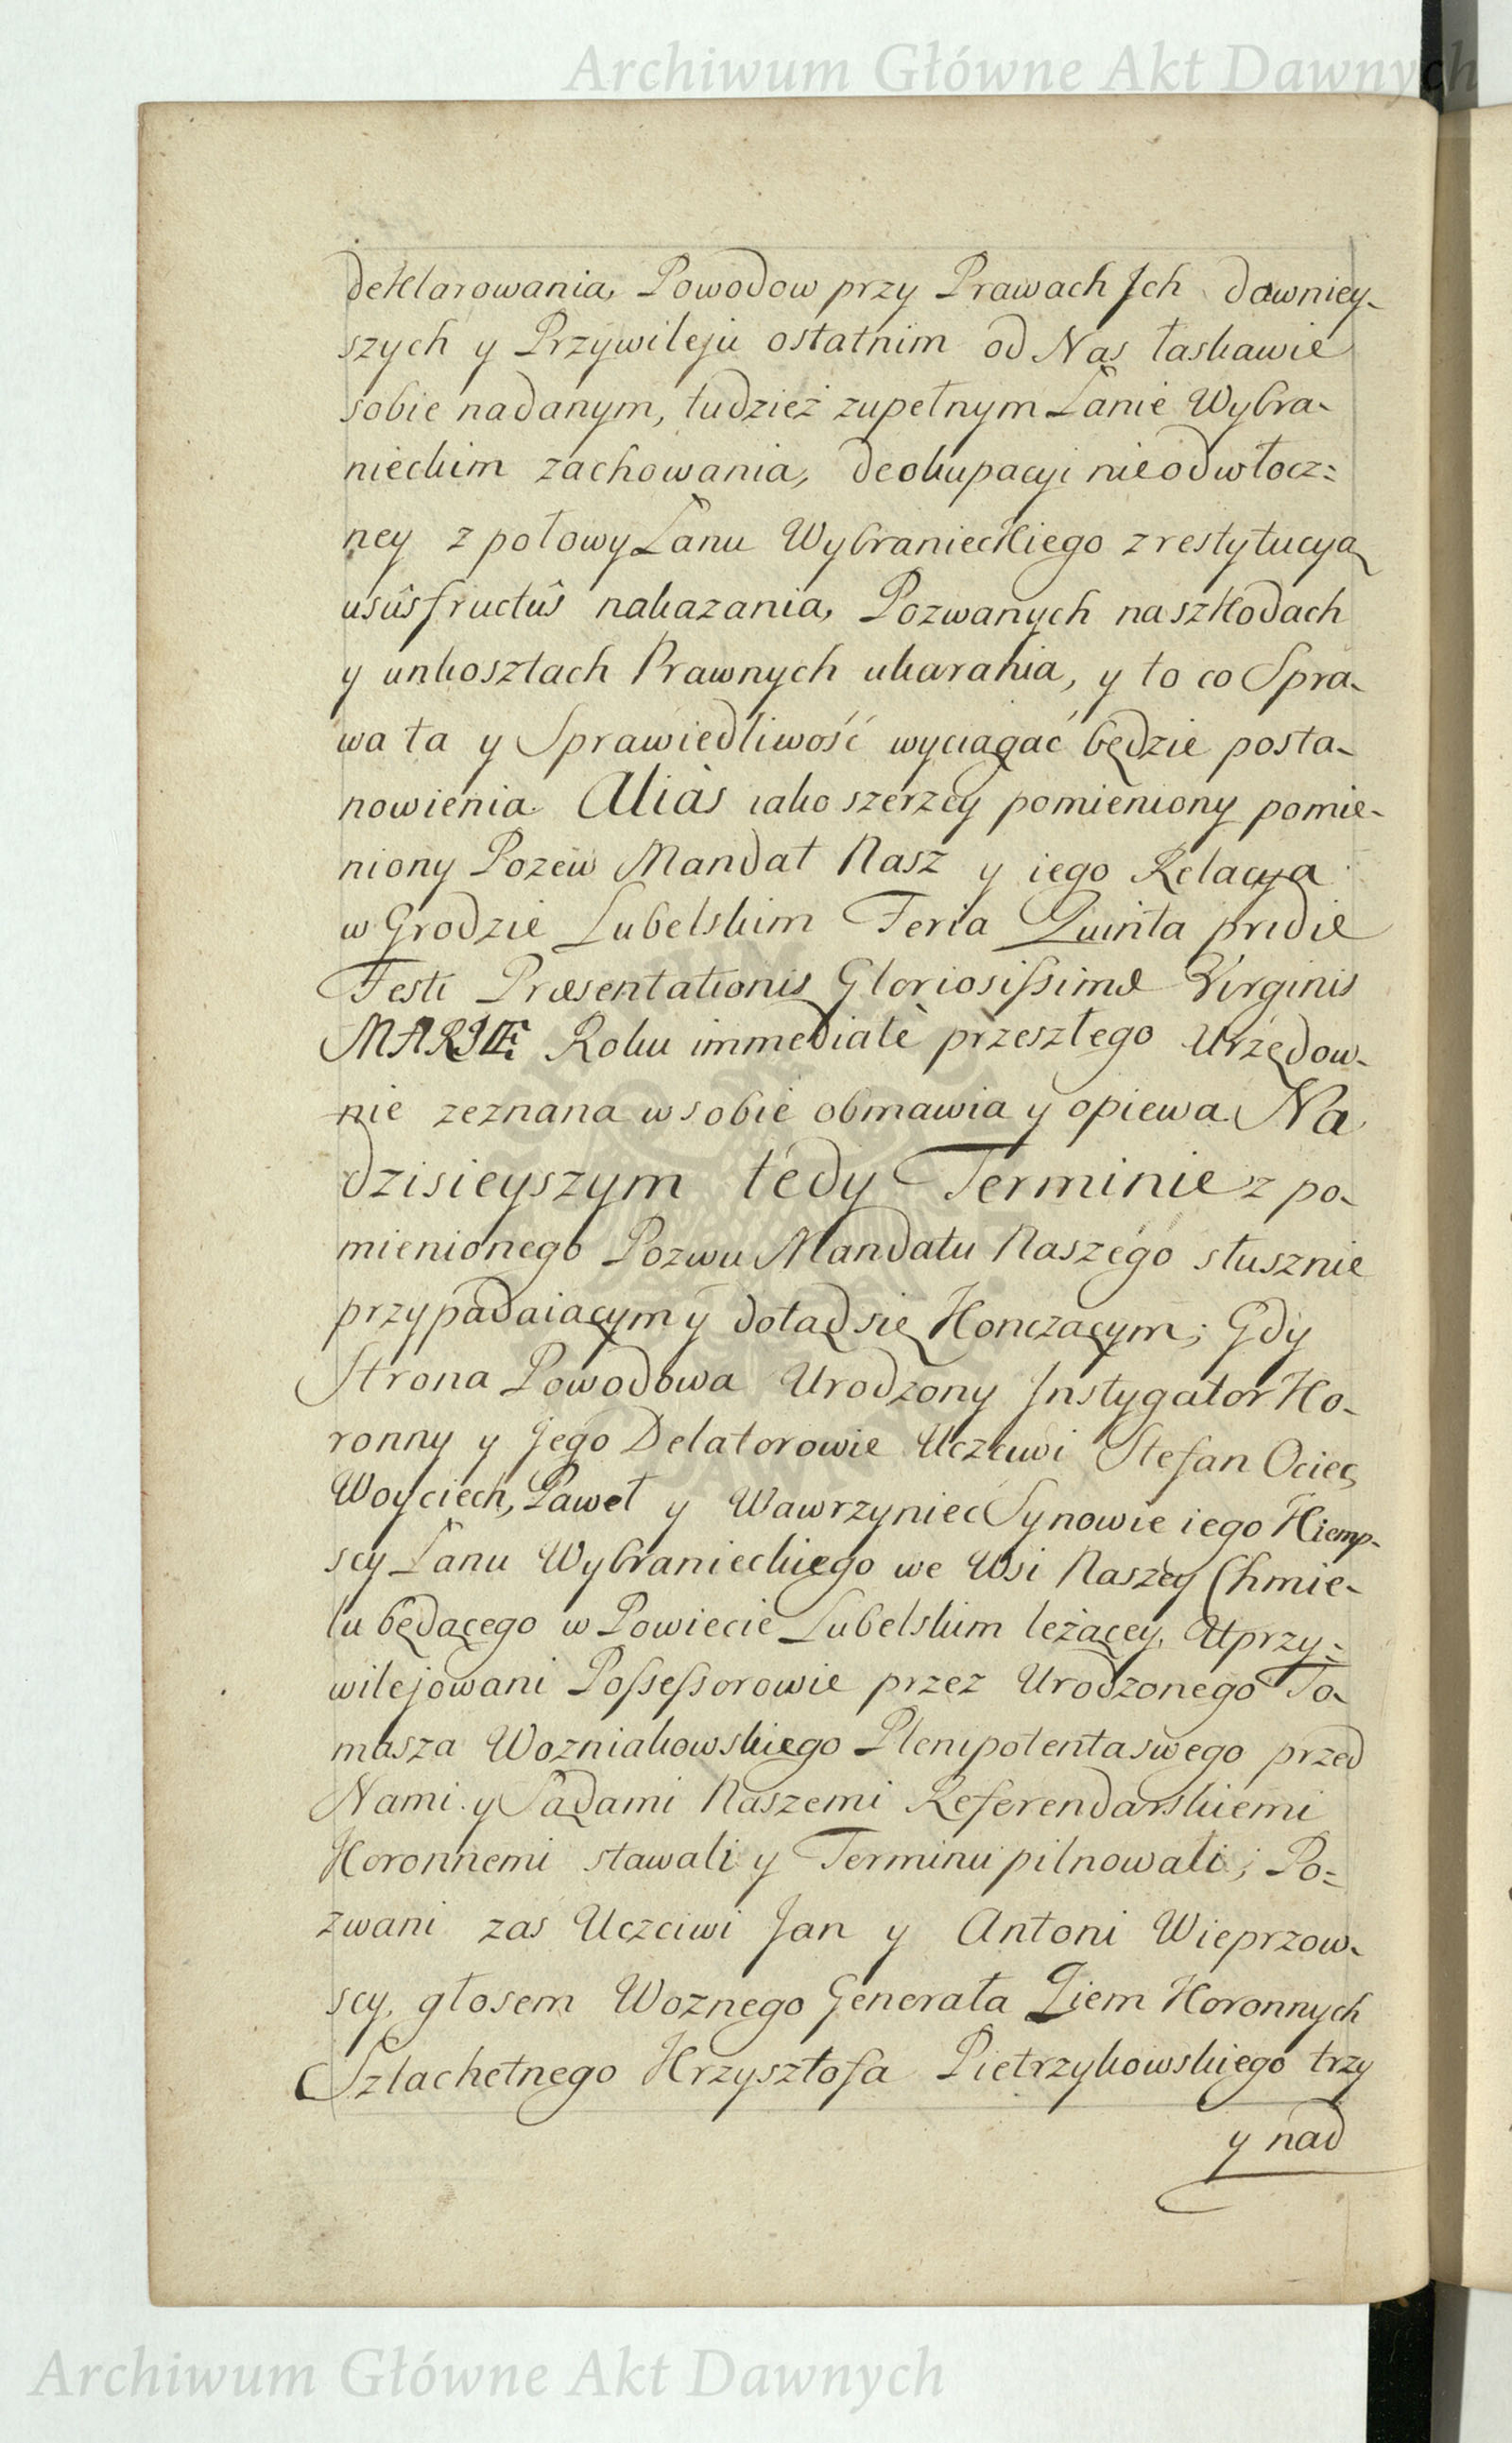 Archiwum Główne Akt Dawnych
deklarowania, Powodow przy Prawach Jch dawniey-
szych y Przywileju ostatnim od Nas łaskawie
sobie nadanym, tudzież zupełnym Łanie Wybra-
nieckim zachowania, deokupacyi nieodwłocz=
ney z połowy Łanu Wybranieckiego z restytucyą
usûsfructûs nakazania, Pozwanych na szkodach
y unkosztach Prawnych ukarania, y to co Spra-
wa ta y Sprawiedliwość wyciągać będzie posta-
nowienia. Aliàs iako szerzey pomieniony pomie-
niony Pozew Mandat Nasz y iego Relacya
w Grodzie Lubelskim Feria Quinta pridie
Festi Præsentationis Gloriosissimæ Virginis
MARIÆ Roku immediatè przeszłego Urzędow-
nie zeznana w sobie obmawia y opiewa. Na
dzisieyszym tedy Terminie z po-
mienionego Pozwu Mandatu Naszego słusznie
przypadaiącym y dotąd się kończącym; Gdy
Strona Powodowa Urodzony Jnstygator Ko-
ronny y Jego Delatorowie Uczciwi Stefan Ociec,
Woyciech, Paweł y Wawrzyniec Synowie iego Kiemp-
scy Łanu Wybranieckiego we Wsi Naszey Chmie-
lu będącego w Powiecie Lubelskim leżącey, Uprzy=
wilejowani Possessorowie przez Urodzonego To-
masza Wozniakowskiego Plenipotenta swego przed
Nami y Sądami Naszemi Referendarskiemi
Koronnemi stawali y Terminu pilnowali; Po=
zwani zas Uczciwi Jan y Antoni Wieprzow-
scy, głosem Woznego Generała Ziem Koronnych
Szlachetnego Krzysztofa Pietrzykowskiego trzy
y nad
Archiwum Główne Akt Dawnych